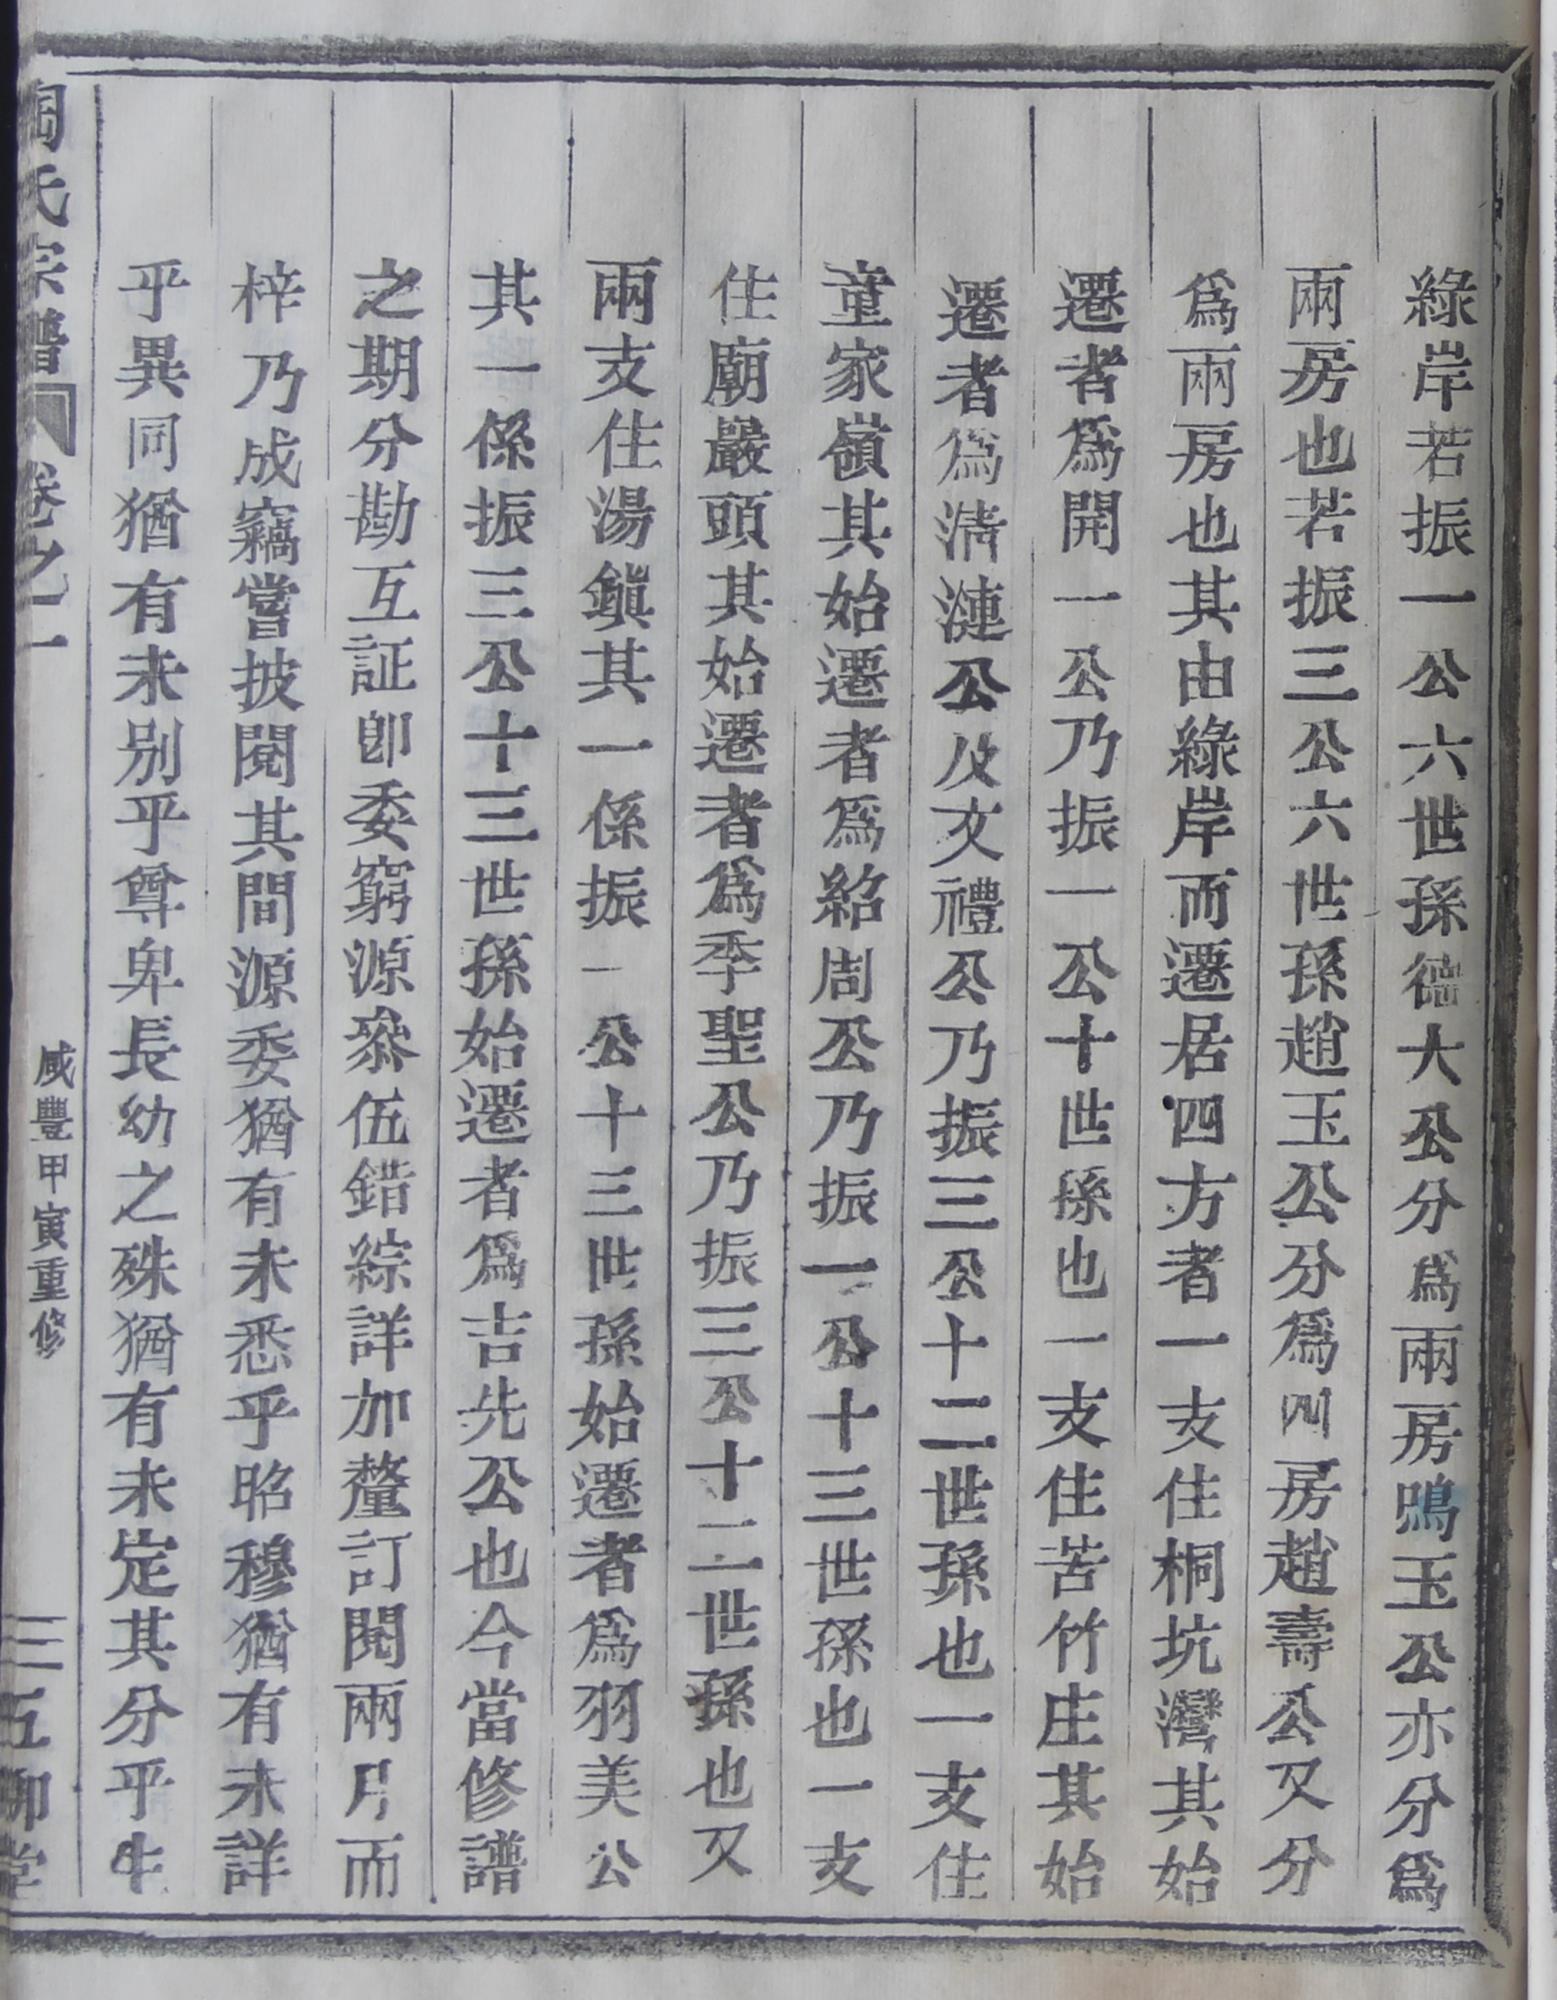 綠岸若振一公六世孫德大公分爲兩房鳴玉公亦分爲
兩房也若振三公六世孫趙玉公分爲四房趙壽公又分
爲兩房也其由綠岸而遷居四方者一支住桐坑灣其始
遷者爲開一公乃振一公十世孫也一支住苦竹庄其始
遷者爲淸漣公及文禮公乃振三公十二世孫也一支住
童家嶺其始遷者爲紹周公乃振一公十三世孫也一支
住廟巖頭其始遷者爲季聖公乃振三公十二世孫也又
兩支住湯鎭其一係振一公十三世孫始遷者爲羽美公
其一係振三公十三世孫始遷者爲吉先公也今當修譜
之期分勘互証卽委窮源叅伍錯綜詳加釐訂閱兩月而
梓乃成竊嘗披閱其間源委猶有未悉乎昭穆猶有未詳
乎異同猶有未別乎尊卑長幼之殊猶有未定其分乎生
氏宗譜 卷之一 咸豐甲寅重修 五柳堂